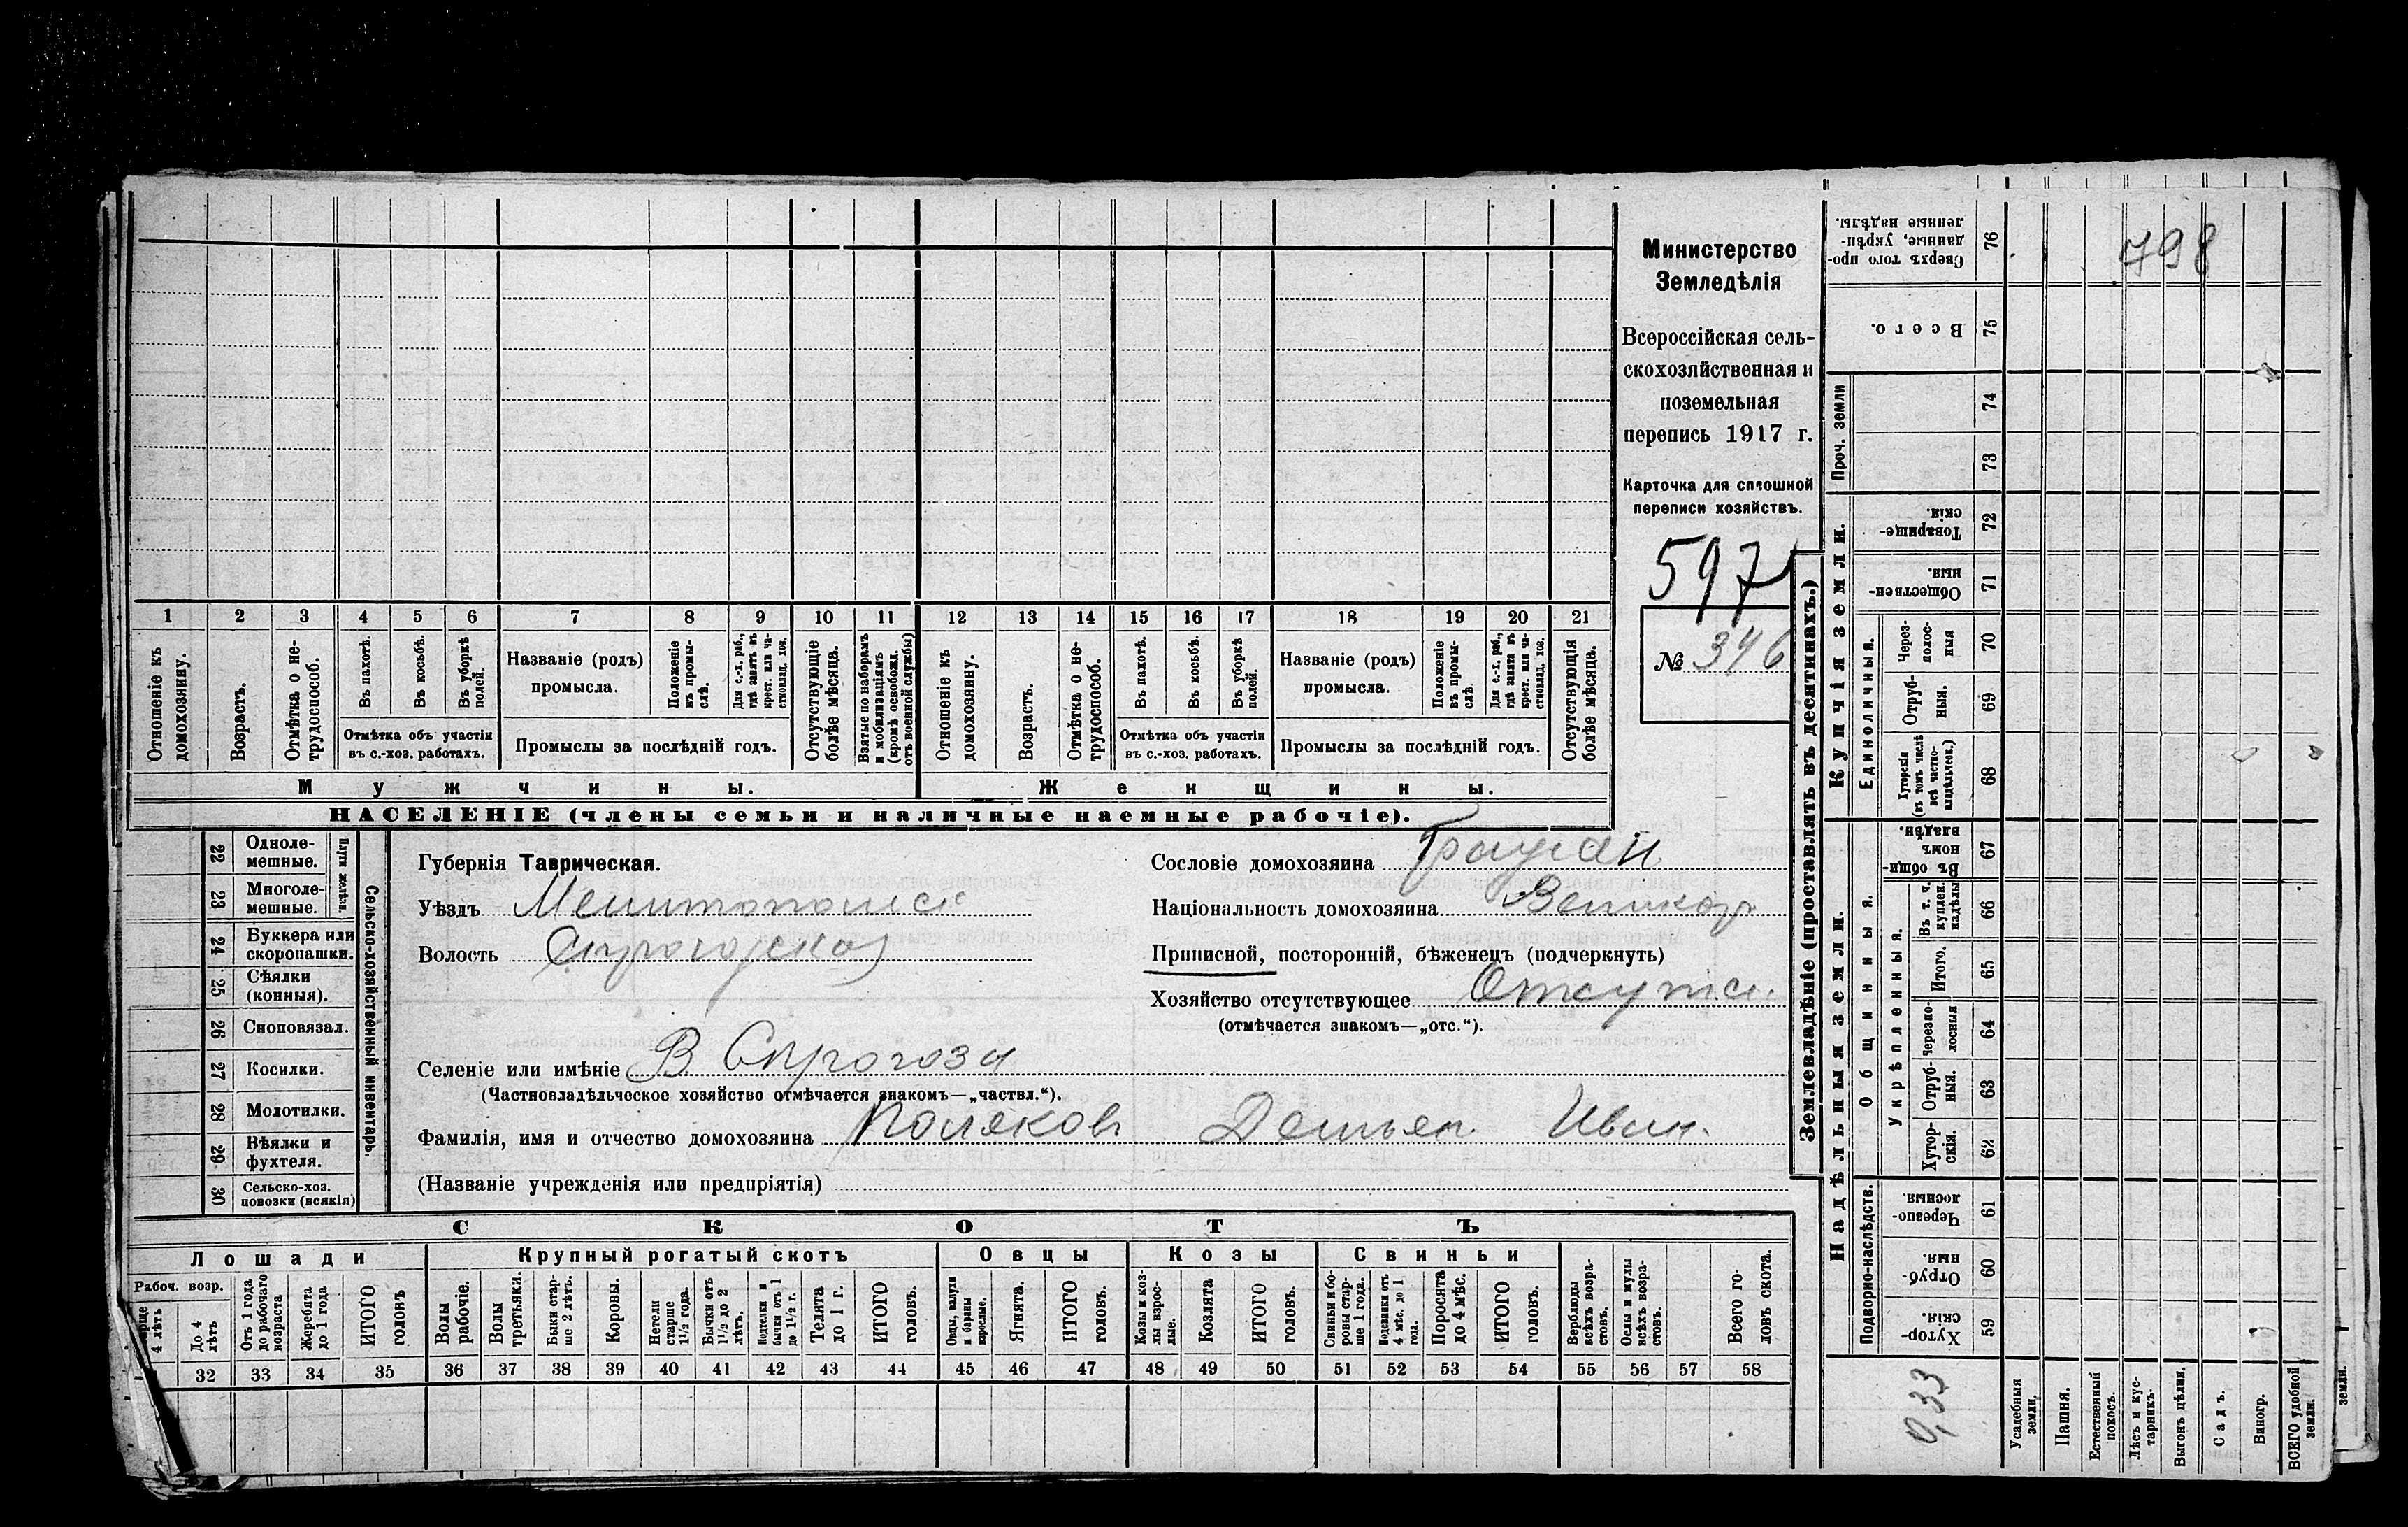 Министерство
Земледѣлія
Всероссійская сель-
скохозяйственная и
поземельная
перепись 1917 г.
Карточка для сплошной
переписи хозяйствъ.
597
№ 346
1 2 3 4 5 6 7 8 9 10 11 12 13 14 15 16 17 18 19 20 21
Отношеніе къ домохозяину.
Возрастъ.
Отмѣтка о не-трудоспособ.
Въ пахотѣ.
Въ косьбѣ.
Въ уборкѣ полей.
Отмѣтка объ участіи
въ с.-хоз. работахъ.
Названіе (родъ)
промысла.
Положеніе въ промы-слѣ.
Для с.-х. раб., гдѣ занятъ въ крест. или ча-стновлад. хоз.
Промыслы за послѣдній годъ.
Отсутствующіе болѣе мѣсяца.
Взятые по наборамъ и мобилизаціямъ (кромѣ освобожд. отъ военной службы)
Отношеніе къ домохозяину.
Возрастъ.
Отмѣтка о не-трудоспособ.
Въ пахотѣ.
Въ косьбѣ.
Въ уборкѣ полей.
Отмѣтка объ участіи
въ с.-хоз. работахъ.
Названіе (родъ)
промысла.
Положеніе въ промы-слѣ.
Для с.-х. раб., гдѣ занята въ крест. или ча-стновлад. хоз.
Промыслы за послѣдній годъ.
Отсутствующія болѣе мѣсяца.
Мужчины. Женщины.
НАСЕЛЕНІЕ (члены семьи и наличные наемные рабочіе).
22 Одноле-мешные.
23 Многоле-мешные.
Плуги желѣзн.
24 Буккера или скоропашки.
25 Сѣялки (конныя).
26 Сноповязал.
27 Косилки.
28 Молотилки.
29 Вѣялки и фухтеля.
30 Сельско-хоз. повозки (всякія)
Сельско-хозяйственный инвентарь.
Губернія Таврическая.
Уѣздъ Мелитопольск
Волость
Сословіе домохозяина Граждан
Національность домохозяина Великор
Приписной, посторонній, бѣженецъ (подчеркнуть)
Хозяйство отсутствующее Отсутств.
(отмѣчается знакомъ—„отс.“).
Селеніе или имѣніе В Сирогозы
(Частновладѣльческое хозяйство отмѣчается знакомъ—„частвл.“).
Фамилія, имя и отчество домохозяина Поляков Демьян Иван.
(Названіе учрежденія или предпріятія)
СКОТЪ
Лошади Крупный рогатый скотъ Овцы Козы Свиньи
Рабоч. возр.
4 лѣтъ
До 4 лѣтъ
Отъ 1 года до рабочаго возраста
Жеребята до 1 года
ИТОГО головъ
Волы рабочіе.
Волы третьяки.
Быки стар-ше 2 лѣтъ.
Коровы.
Нетели старше 1½ года.
Бычки отъ 1½ до 2 лѣтъ.
Подтелки и бычки отъ 1 до 1½ г.
Телята до 1 г.
ИТОГО головъ.
Овцы, валухи и бараны взрослые.
Ягнята.
ИТОГО головъ.
Козы и коз-лы взрос-лые.
Козлята
ИТОГО головъ.
Свиньи и бо-ровы стар-ше 1 года.
Подсвинки отъ 4 мѣс. до 1 года.
Поросята до 4 мѣс.
ИТОГО головъ.
Верблюды всѣхъ возра-стовъ.
Ослы и мулы всѣхъ возра-стовъ.
Всего го-ловъ скота.
32 33 34 35 36 37 38 39 40 41 42 43 44 45 46 47 48 49 50 51 52 53 54 55 56 57 58
Землевладѣніе (проставлять въ десятинахъ.)
Купчія земли.
Надѣльныя земли.
Проч. земли
Единоличныя.
Общинныя.
Укрѣпленныя.
Подворно-наслѣдств.
Сверхъ того про-данные, укрѣп-ленные надѣлы. 76
Всего. 75
74
73
Товарище-скія. 72
Обществен-ныя. 71
Через-полос-ныя 70
Отруб-ныя. 69
Хуторскія (въ томъ числѣ всѣ частно-владѣльческ.) 68
Въ общин-номъ владѣн. 67
Въ т. ч. куплен. надѣлы 66
Итого. 65
Черезпо-лосныя 64
Отруб-ныя. 63
Хутор-скія. 62
Черезпо-лосныя. 61
Отруб-ныя. 60
Хутор-скія. 59
798
0,33
Усадебныя земли.
Пашня.
Естественный покосъ.
Лѣсъ и кус-тарникъ.
Выгонъ цѣлин.
Садъ.
Виногр.
ВСЕГО удобной земли.
земли.